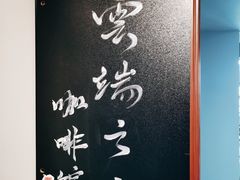 雲端之
咖啡館